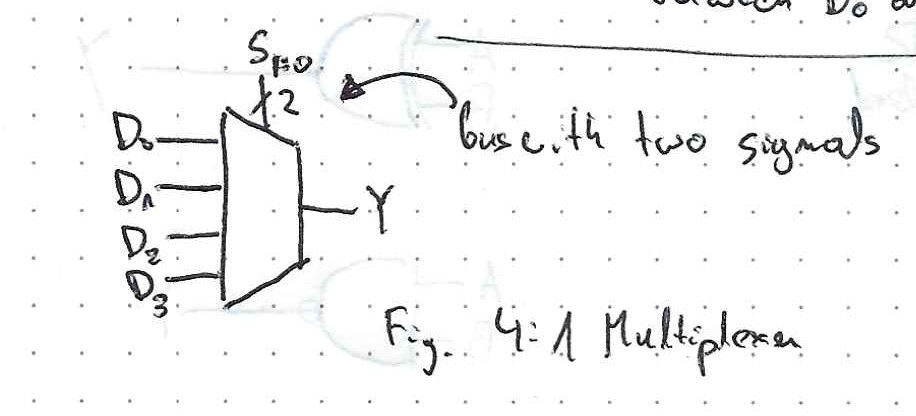 between D₀
S₁:₀
2
bus with two signals
D₀
D₁
Y
D₂
D₃
Fig. 4:1 Multiplexer